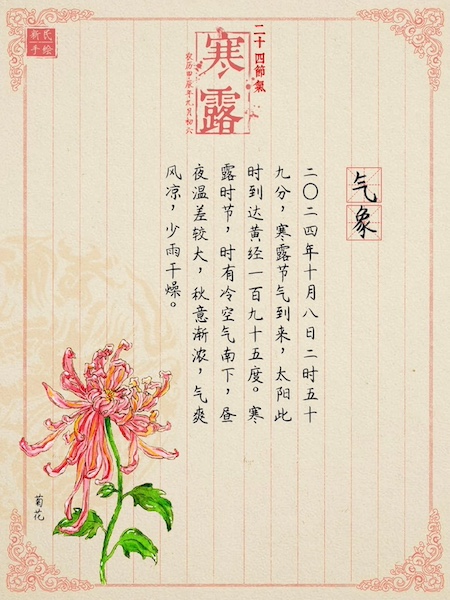 新氏
手绘
二十四節氣
寒露
农历甲辰年九月初六
气象
二〇二四年十月八日二时五十
九分，寒露节气到来，太阳此
时到达黄经一百九十五度。寒
露时节，时有冷空气南下，昼
夜温差较大，秋意渐浓，气爽
风凉，少雨干燥。
菊花